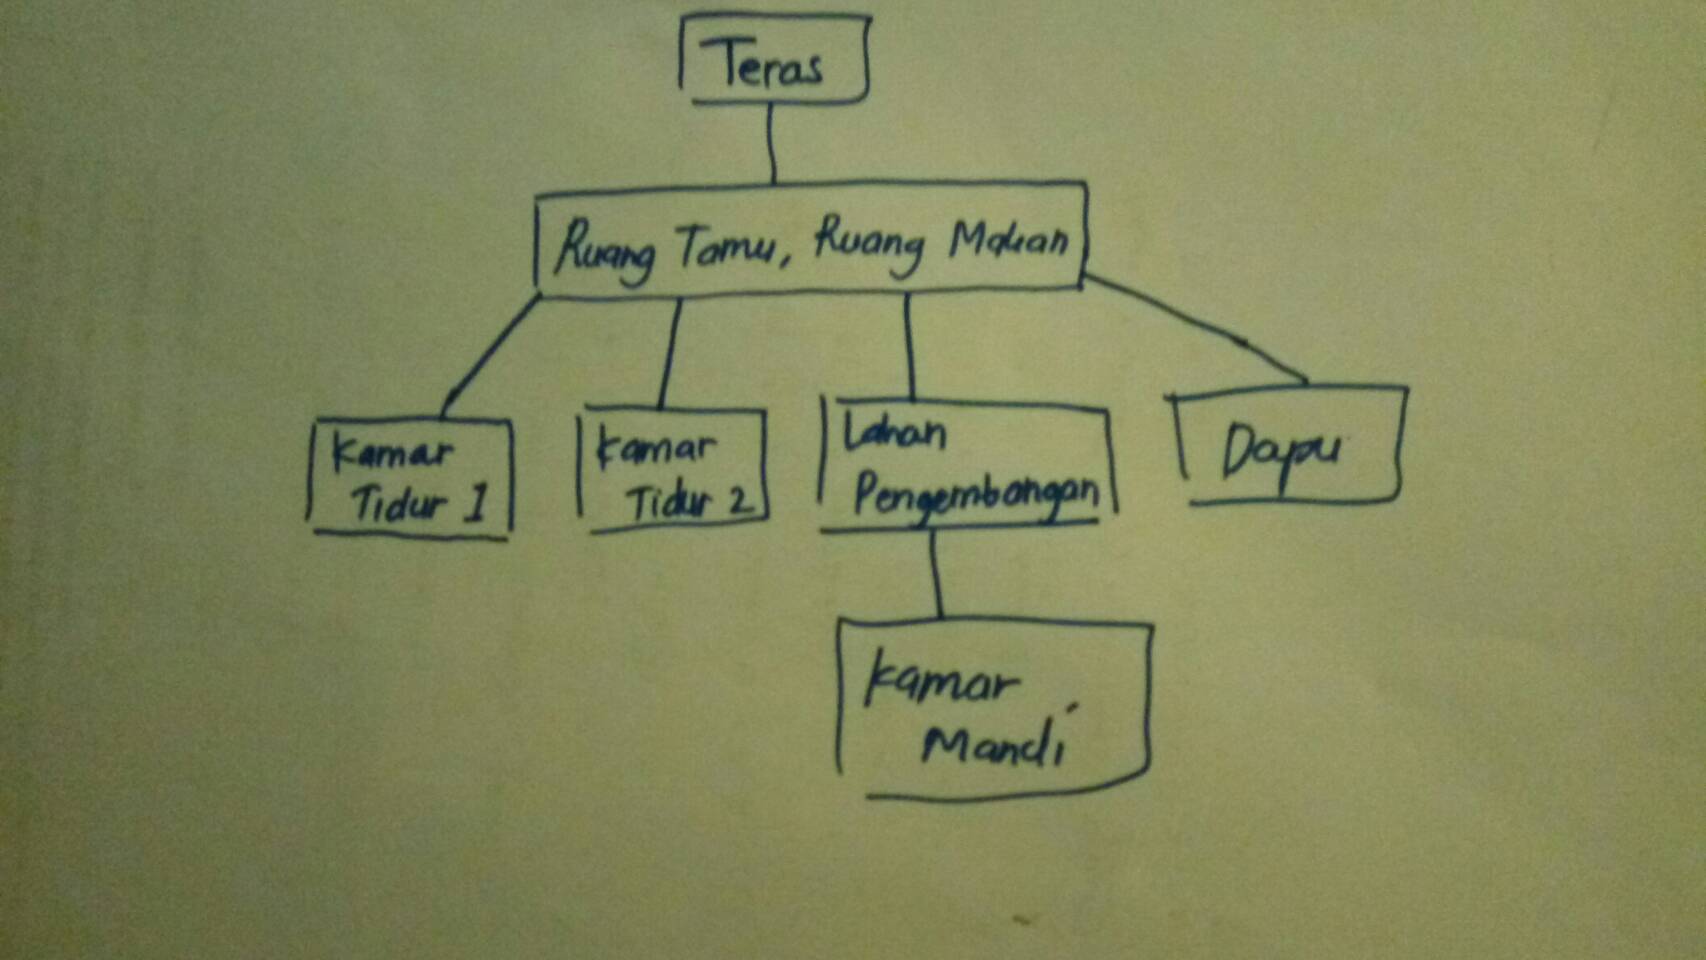 Teras
Ruang Tamu, Ruang Makan
Kamar
Tidur 1
Kamar
Tidur 2
Lahan
Pengembangan
Dapur
Kamar
Mandi